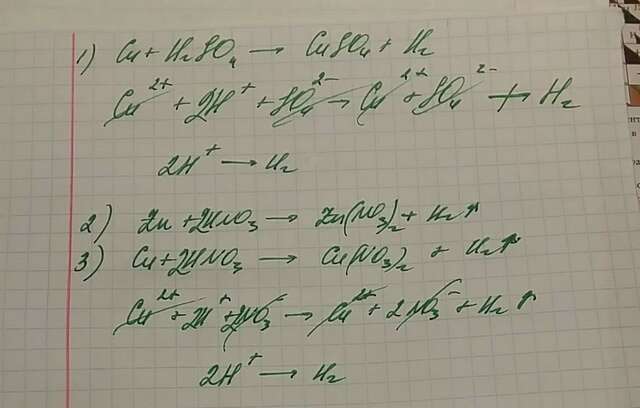 1) Cu + H₂SO₄ → CuSO₄ + H₂
Cu²⁺ + 2H⁺ + SO₄²⁻ → Cu²⁺ + SO₄²⁻ + H₂
2H⁺ → H₂
2) Zn + 2HNO₃ → Zn(NO₃)₂ + H₂↑
3) Cu + 2HNO₃ → Cu(NO₃)₂ + H₂↑
Cu²⁺ + 2H⁺ + 2NO₃⁻ → Cu²⁺ + 2NO₃⁻ + H₂↑
2H⁺ → H₂